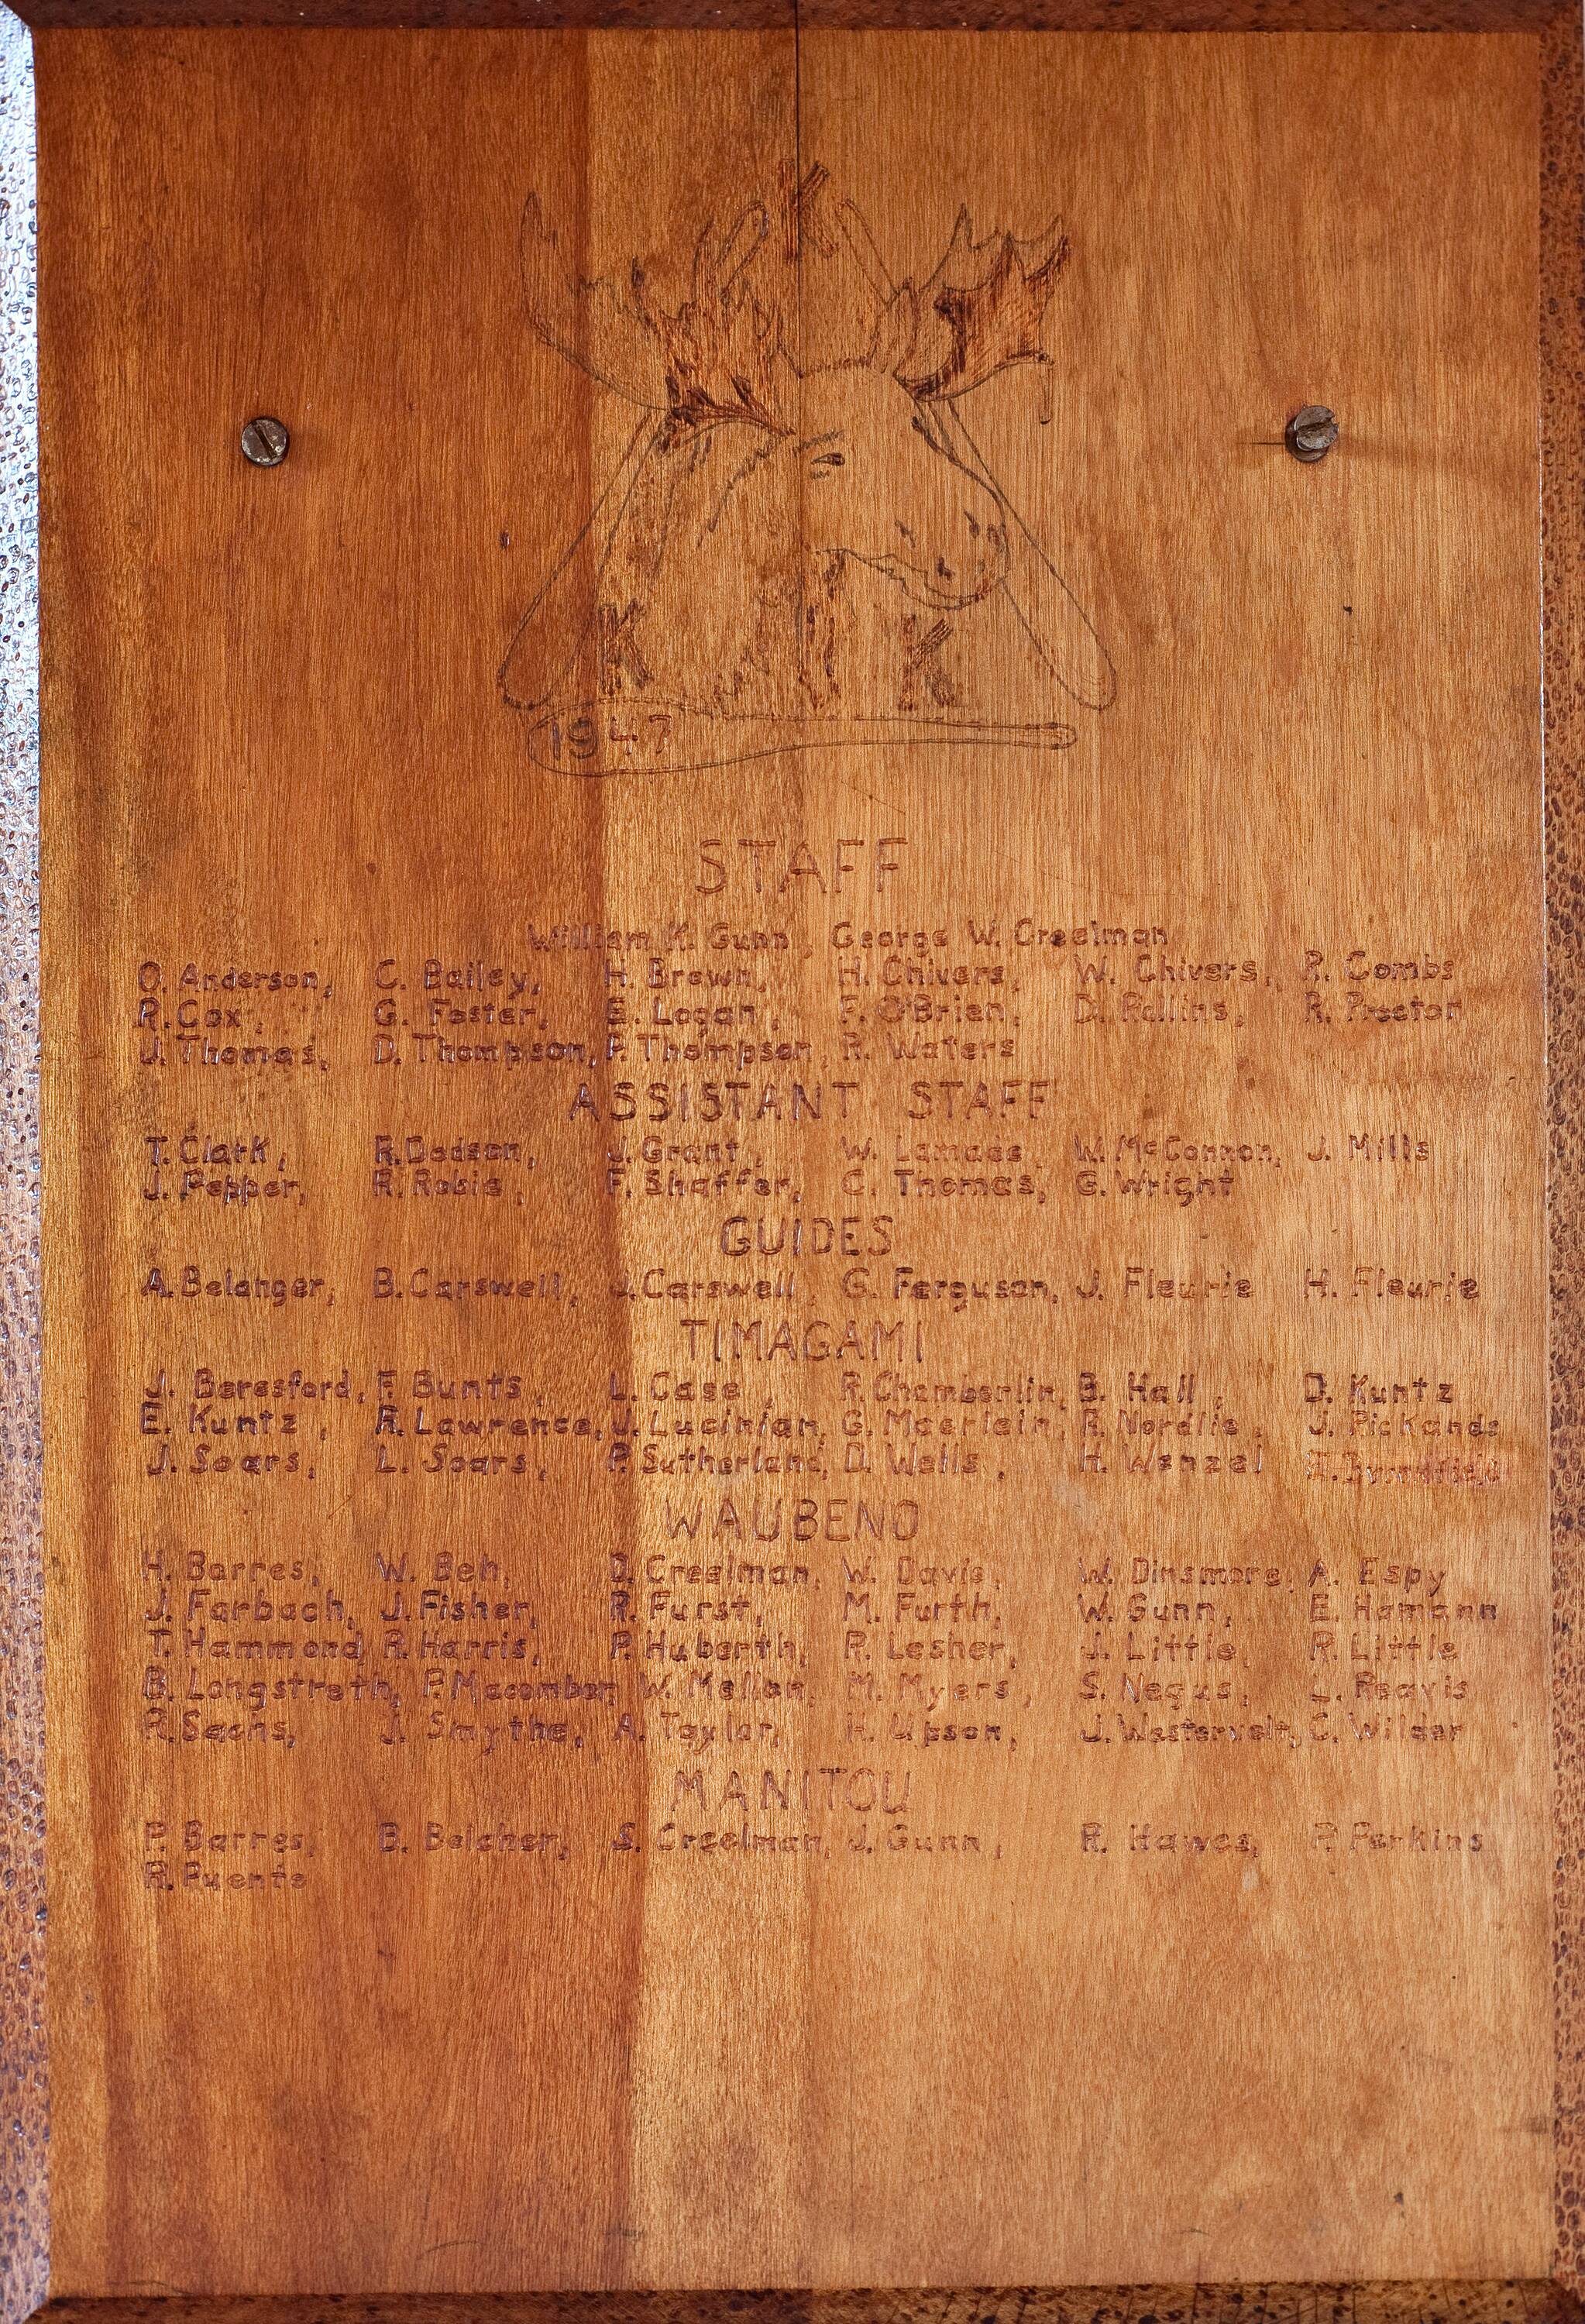 K
K K
1947
STAFF
William K. Gunn, George W. Creelman
O. Anderson, C. Bailey, H. Brown, H. Chivers, W. Chivers, R. Combs
R. Cox, G. Foster, E. Logan, F. O'Brien, D. Rollins, R. Proctor
J. Thomas, D. Thompson, P. Thompson, R. Waters
ASSISTANT STAFF
T. Clark, R. Dodson, J. Grant, W. Lamade, W. McConnon, J. Mills
J. Pepper, R. Rosie, F. Shaffer, C. Thomas, G. Wright
GUIDES
A. Belanger, B. Carswell, J. Carswell, G. Ferguson, J. Fleurie H. Fleurie
TIMAGAMI
J. Beresford, F. Bunts, L. Case, R. Chamberlin, B. Hall, D. Kuntz
E. Kuntz, R. Lawrence, J. Lucinian, G. Maerlein, R. Nordlie, J. Pickands
J. Soars, L. Soars, P. Sutherland, D. Wells, H. Wenzel
WAUBENO
H. Barres, W. Beh, D. Creelman, W. Davis, W. Dinsmore, A. Espy
J. Farbach, J. Fisher, R. Furst, M. Furth, W. Gunn, E. Hamann
T. Hammond, R. Harris, P. Huberth, P. Lesher, J. Little, R. Little
B. Longstreth, P. Macomber, W. Mellon, M. Myers, S. Negus, L. Reavis
R. Sachs, J. Smythe, A. Taylor, H. Upson, J. Westervelt, C. Wilder
MANITOU
P. Barres, B. Belcher, S. Creelman, J. Gunn, R. Hawes, P. Perkins
R. Puente